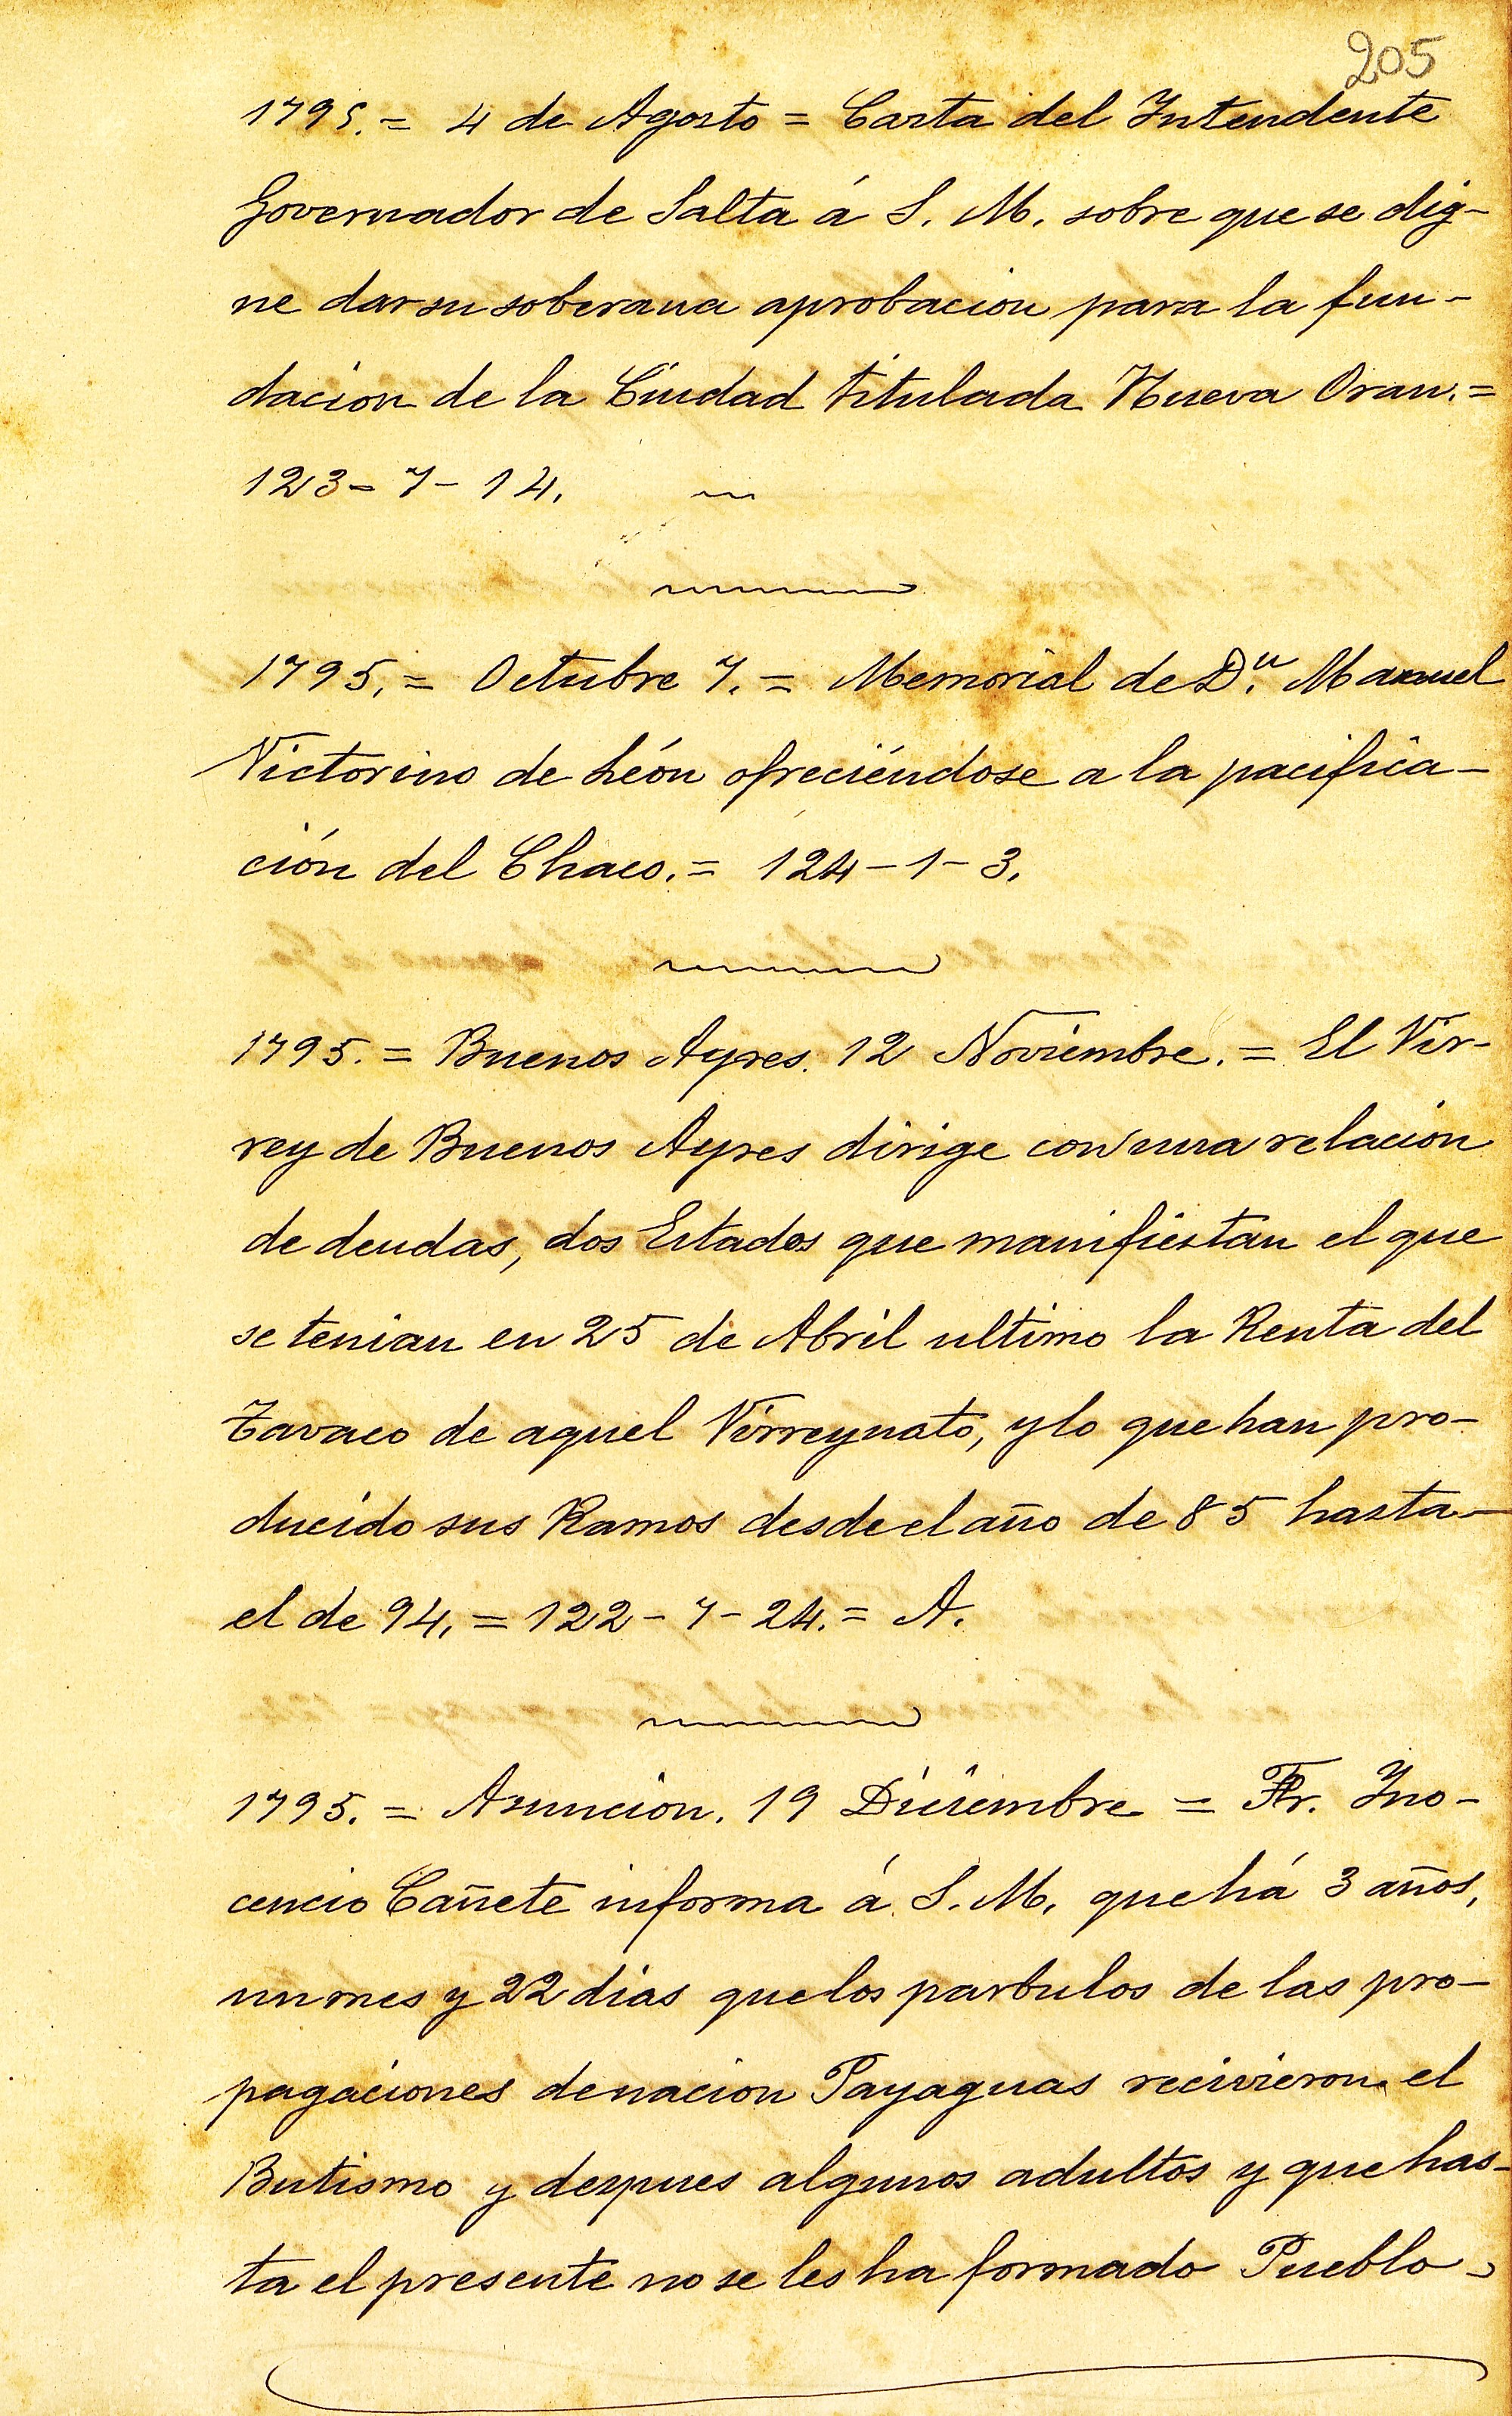 205
1795. = 4 de Agosto = Carta del Intendente
Governador de Salta á S. M. sobre que se dig-
ne dar su soberana aprobacion para la fun-
dacion de la Ciudad titulada Nueva Oran. =
123 - 7 - 14.
1795. = Octubre 7. = Memorial de D.n Manuel
Victorino de Léon ofreciéndose a la pacifica-
ción del Chaco. = 124 - 1 - 3.
1795. = Buenos Ayres. 12 Noviembre. = El Vir-
rey de Buenos Ayres dirige con una relacion
de deudas, dos Estados que manifiestan el que
se tenian en 25 de Abril ultimo la Renta del
Tavaco de aquel Virreynato, y lo que han pro-
ducido sus Ramos desde el año de 85 hasta -
el de 94. = 122 - 7 - 24. = A.
1795. = Asuncion. 19 Diciembre = Fr. Yno-
cencio Cañete informa á S. M. que há 3 años,
un mes y 22 dias que los parbulos de las pro-
pagaciones de nacion Payaguas recivieron el
Butismo y despues algunos adultos y que has-
ta el presente no se les ha formado Pueblo -